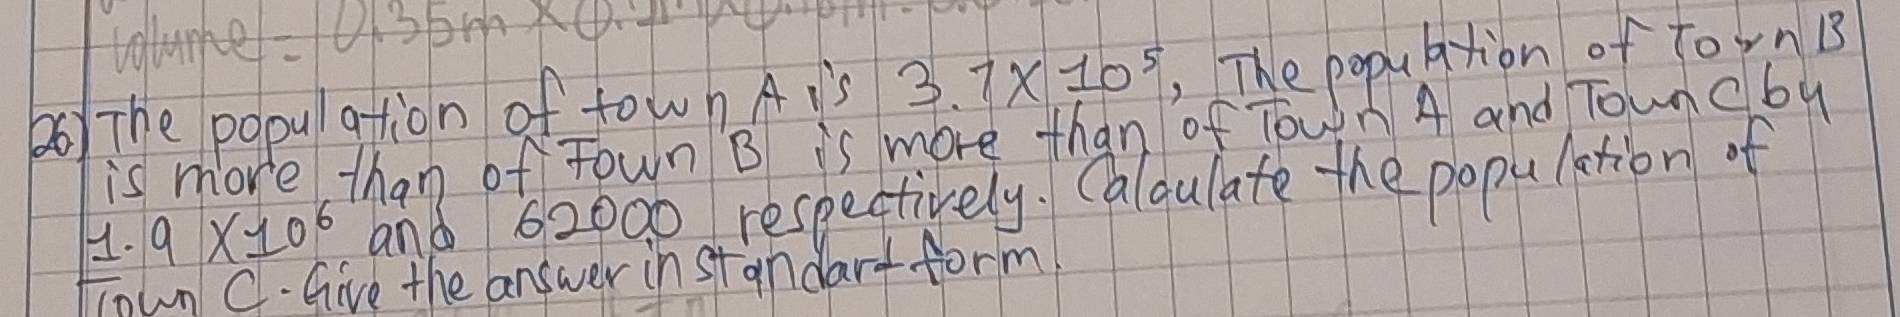 volume = 0.35m
26) The population of town A is 3.7 X 10⁵, The population of Town B
is more than of Town B is more than of Town A and Town C by
1.9 X 10⁶ and 62000 respectively. Calculate the population of
Town C. Give the answer in standard form.